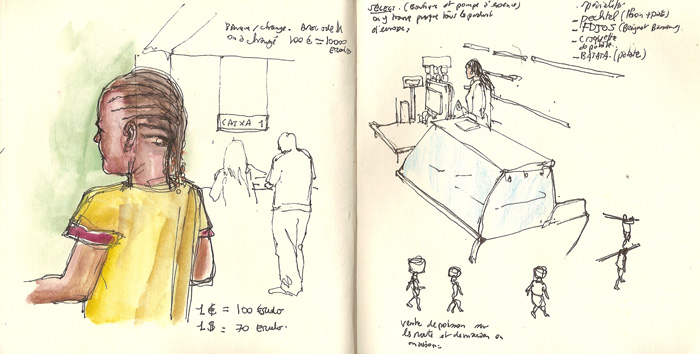 Banque/change.
on a changé 100 € = 10000
escudo
CAIXA 1
1 € = 100 Escudo
1 $ = 70 Escudo.
SELECT. (Boutique et pompe à essence)
on y trouve presque tous les produits
d'europe,
- pechtel (
- FIJOS (Beignet Banane)
- croquette
de patate
- BATATA. (patate)
vente de poisson sur
la route et de maison en
maison.